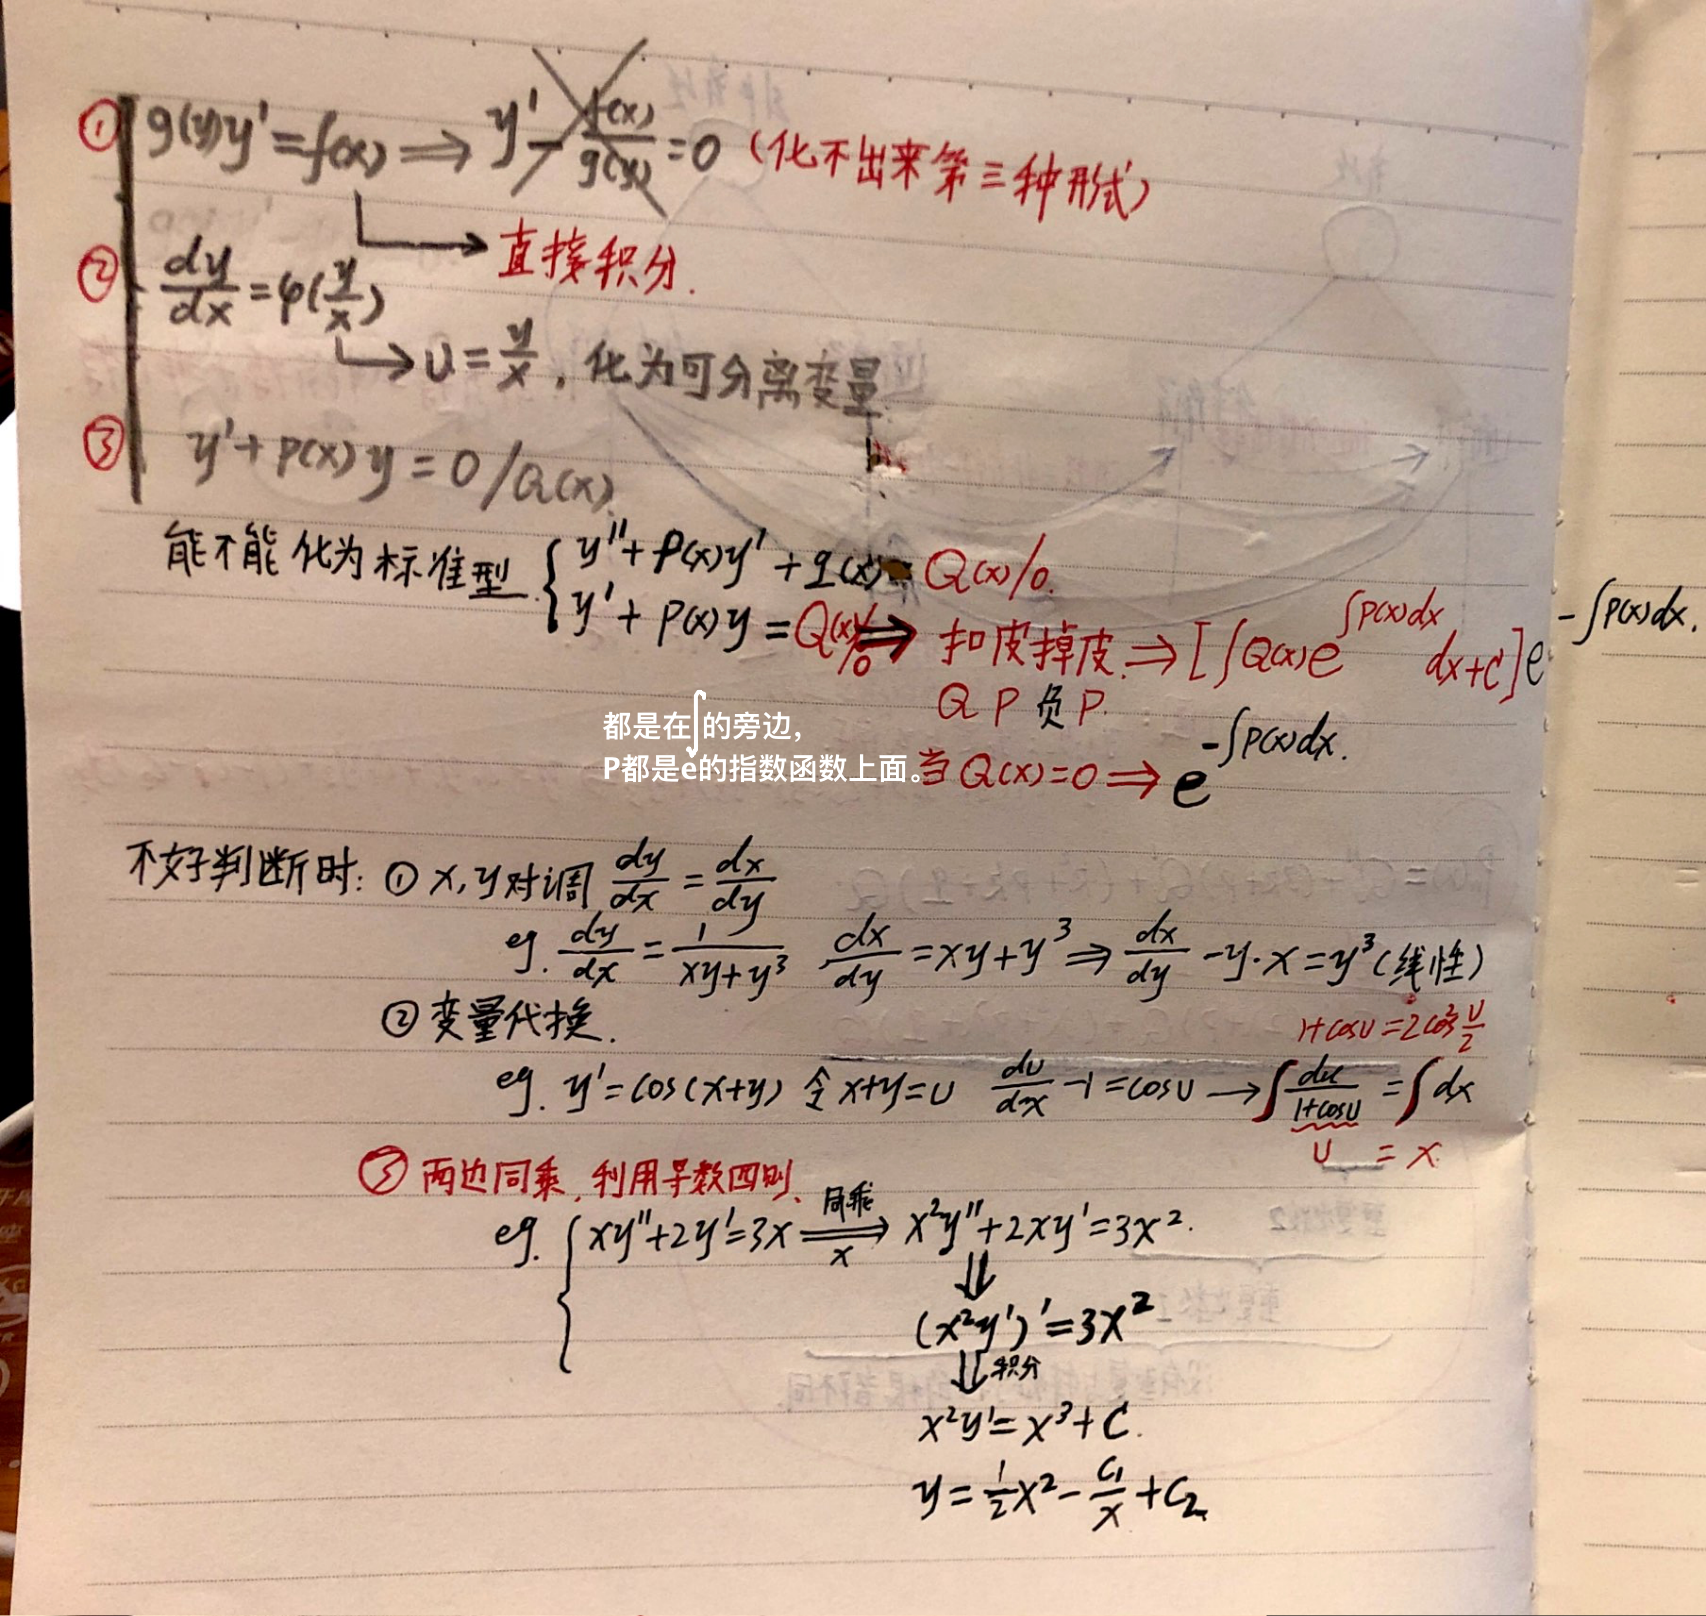 ① g(y)y'=f(x) ⟹ y'-f(x)/g(x)=0 (化不出来第三种形式)
直接积分.
② dy/dx=φ(y/x)
u=y/x, 化为可分离变量
③ y'+p(x)y=0/Q(x).
能不能化为标准型 { y''+p(x)y'+q(x)= Q(x)/0.
y'+p(x)y=Q(x)/0 ⟹ 扣皮掉皮. ⟹ [∫Q(x)e^∫p(x)dx dx+C]e^-∫p(x)dx.
Q P 负 P.
都是在∫的旁边,
P都是e的指数函数上面。
当Q(x)=0 ⟹ e^-∫p(x)dx.
不好判断时: ① x,y对调 dy/dx=dx/dy
eg. dy/dx=1/(xy+y³) dx/dy=xy+y³ ⟹ dx/dy-y·x=y³(线性)
② 变量代换.
1+cosu=2cos²u/2
eg. y'=cos(x+y) 令x+y=u du/dx-1=cosu → ∫du/(1+cosu)=∫dx
u = x.
③ 两边同乘, 利用导数四则.
eg. { xy''+2y'=3x ⟹ 同乘 x x²y''+2xy'=3x².
⇓
(x²y')'=3x²
⇓积分
x²y'=x³+C.
y=1/2x²-C₁/x+C₂